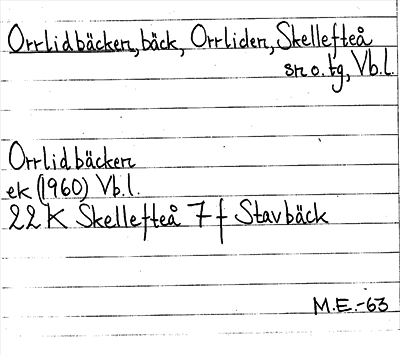 Orrlidbäcken, bäck, Orrliden, Skellefteå
sn o. tg, Vb.l.
Orrlidbäcken
ek (1960) Vb.l.
22 K Skellefteå 7 f Stavbäck
M.E.-63